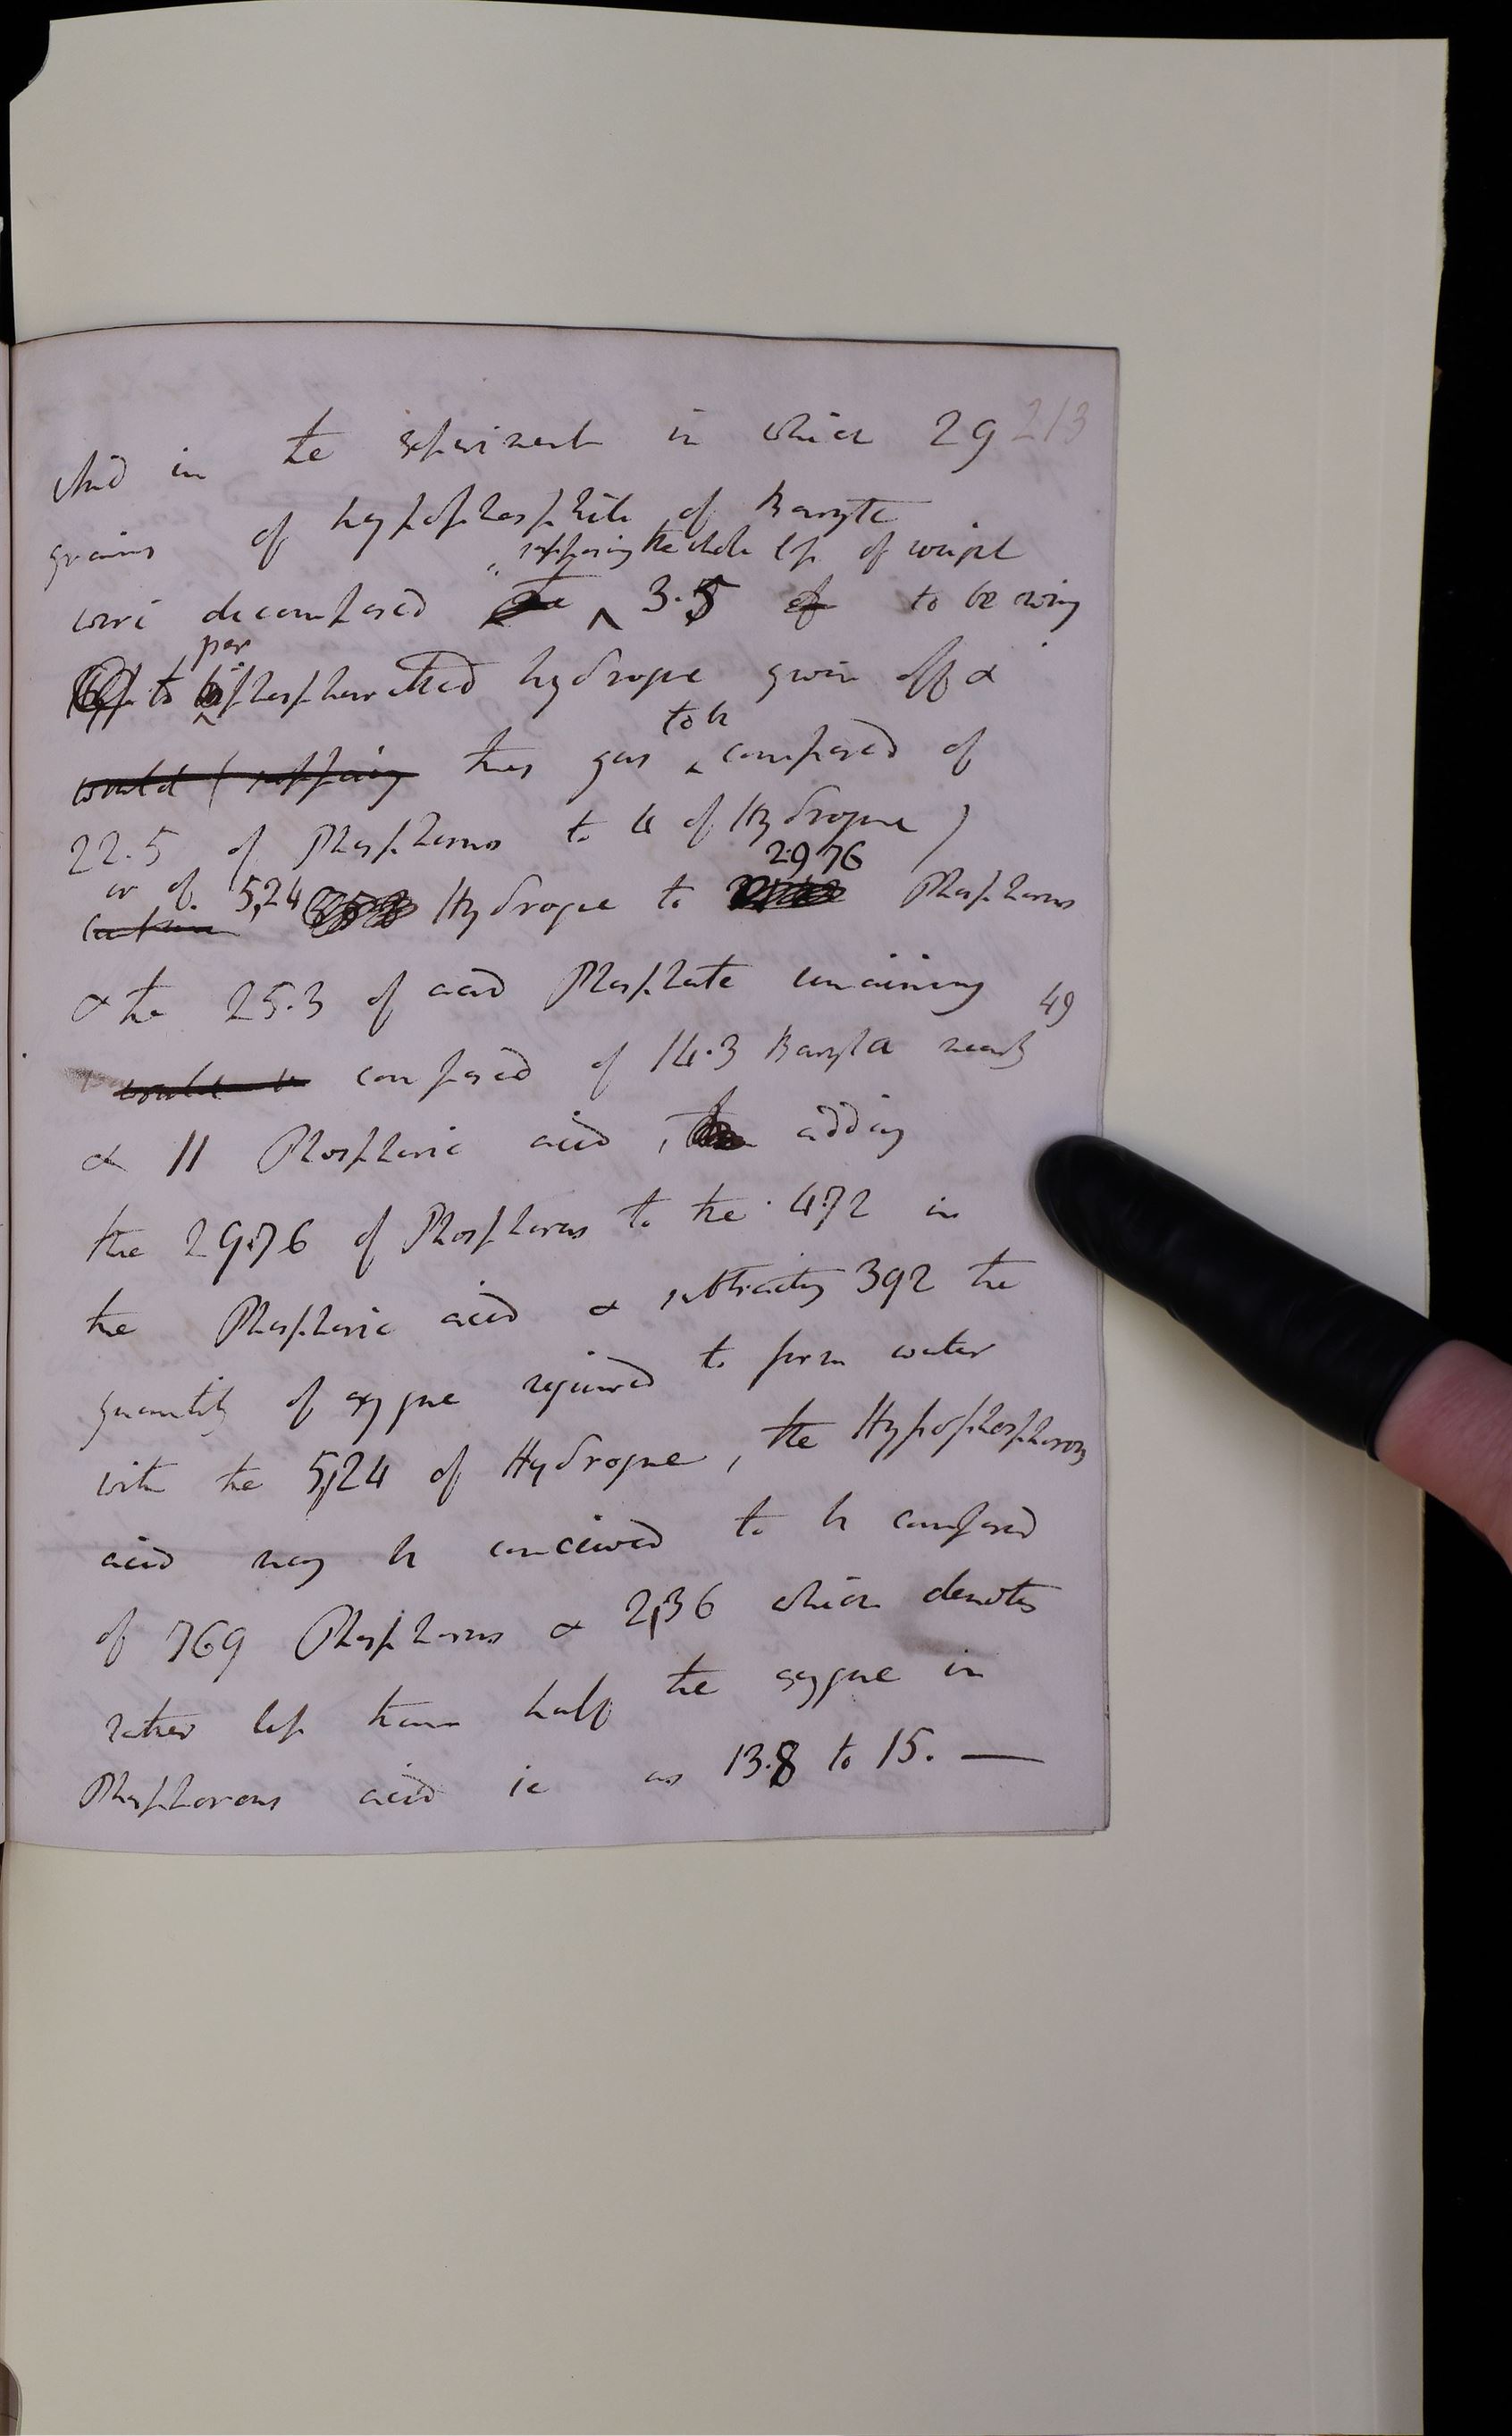 And in the experiment in which 29 213
grains of hypophosphite of Baryte
supposing the whole loss of weight
were decomposed the 3.5 of to be owing
per
to biphosphuretted hydrogene given off &
to be
would (supposing this gas composed of
22.5 of Phosphorus to 4 of Hydrogene)
2.976
or of .524 Hydrogene to Phosphorus
& the 25.3 of acid Phosphate remaining
49
would be composed of 14.3 Baryta nearly
& 11 Phosphoric acid, adding
the 2.976 of Phosphorus to the 4.72 in
the Phosphoric acid & subtracting 392 the
quantity of oxygene required to form water
with the .524 of Hydrogene, the Hypophosphorous
acid may be conceived to be composed
of 769 Phosphorus & 2,36 which denotes
rather less than half the oxygene in
Phosphorous acid ie as 13.8 to 15. —